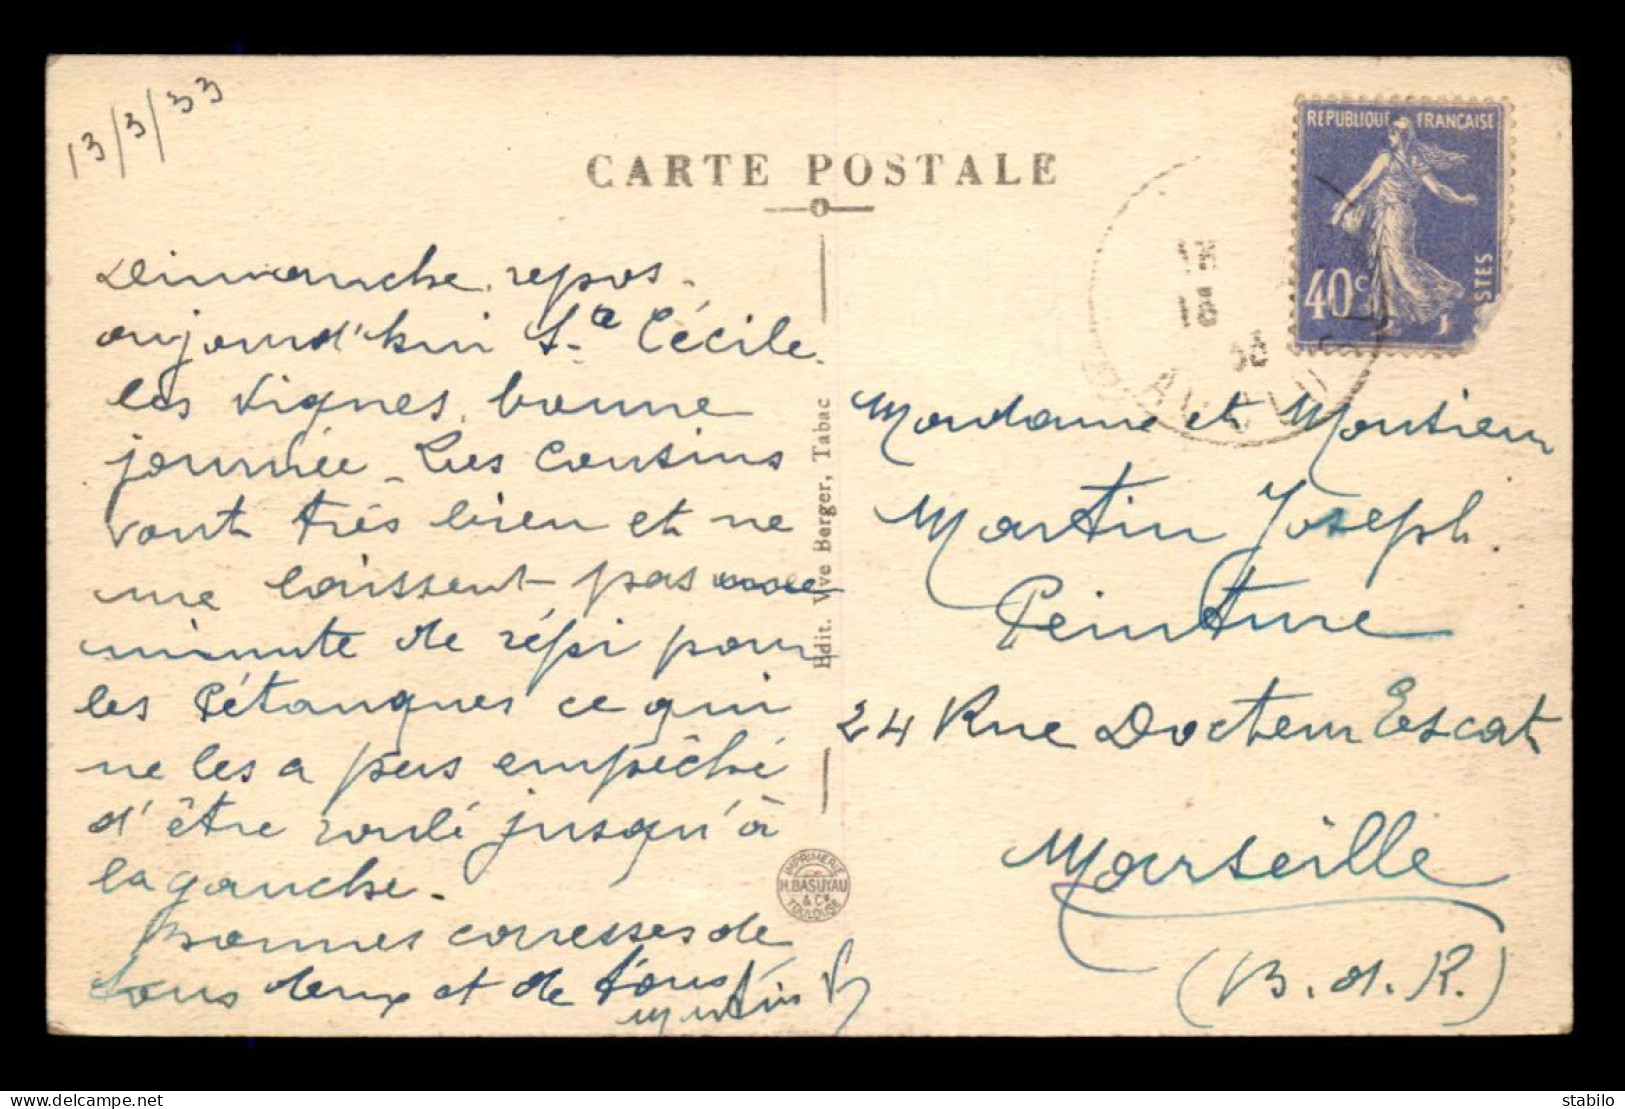 13/3/33
CARTE POSTALE
REPUBLIQUE FRANÇAISE
40c
POSTES
Dimanche repos.
aujourd'hui Ste Cécile
les Vignes, bonne
journée. Les Cousins
vont très bien et ne
me laissent pas une
minute de répi pour
les Pétanques ce qui
ne les a pas empêché
d'être roulé jusqu'à
la gauche.
Bonnes caresses de
tous deux et de tous
Martin
Madame et Monsieur
Martin Joseph.
Peinture
24 Rue Docteur Escat
Marseille
(B. d. R.)
Edit. Vve Berger, Tabac
IMPRIMERIE
H. BASUYAU
& Cie
TOULOUSE
delcampe.net
stabilo